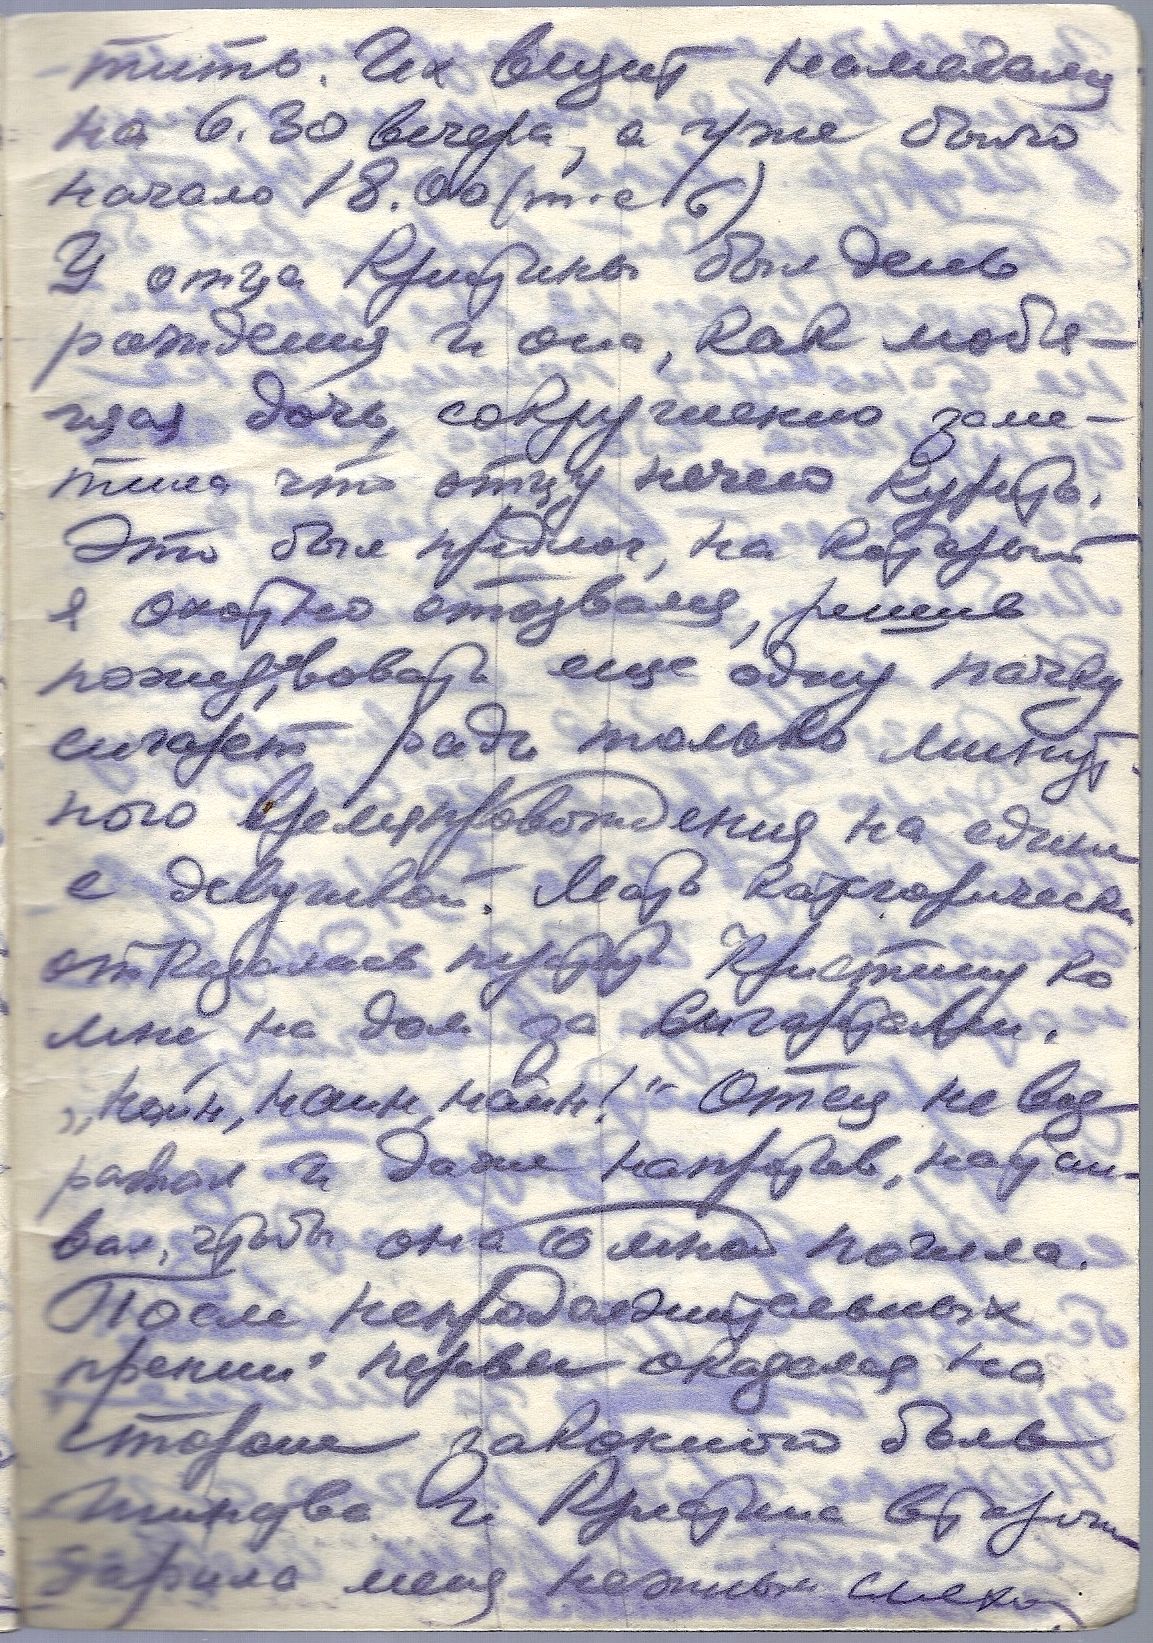 тить. Их визит намечали
на 6.30 вечера, а уже было
начало 18.00 (т.е 6)
У отца Кристины был день
рождения и она, как любя-
щая дочь, сокрушенно заме-
тила что отцу нечего курить.
Это был предлог, на который
я охотно отозвался, решив
пожертвовать еще одну пачку
сигарет ради только минут
ного времяпровождения на едине
с девушкой. Мать категорически
отказалась пустить Кристину ко
мне на дом за сигаретами.
„Найн, наин, найн!“ Отец не воз
ражал и даже напротив, настаи-
вал, чтобы она со мной пошла.
После непродолжительных
прений перевес оказался на
стороне законного боль
шинства и Кристина вторично
дарила меня нежным смехом